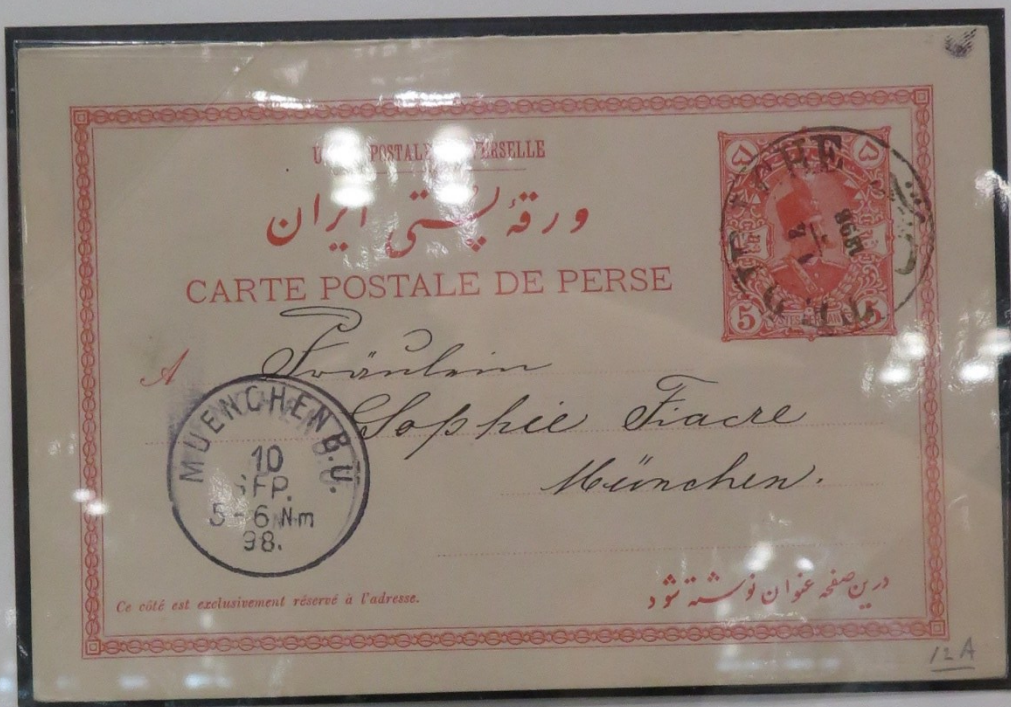 POSTALE
ورقهٔ پستی ایران
CARTE POSTALE DE PERSE
5 5
1898
A Fräulein
Sophie Fiacre
München.
MUENCHEN B.U.
10
SEP.
5-6 Nm
98.
Ce côté est exclusivement réservé à l'adresse.
درین صفحه عنوان نوشته شود
12A